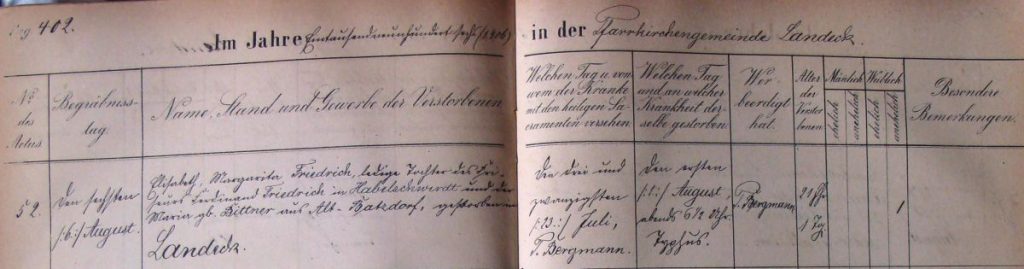 pag 402.
Im Jahre Eintausendneunhundert sechs (1906) in der Pfarrkirchengemeinde Landeck.
No des Actus.
Begräbniss-tag.
Name, Stand und Gewerbe der Verstorbenen
Welchen Tag u. von
wem der Kranke
mit den heiligen Sa-
cramenten versehen.
Welchen Tag
und an welcher
Krankheit der-
selbe gestorben
Wer
beerdigt
hat.
Alter
der
Verstor-
benen
Männlich
ehelich
unehelich
Weiblich
ehelich
unehelich
Besondere
Bemerkungen.
52.
Den sechsten
/:6:/ August.
Elisabeth, Margarita Friedrich, ledige Tochter des
Ferdinand Friedrich in Habelschwerdt und der
Maria gb. Bittner aus Alt-Batzdorf, gestorben in
Landeck.
Den drei und
zwanzigsten
/:23:/ Juli,
P. Bergmann.
Den ersten
/:1:/ August
abends 6½ Uhr
Typhus.
P. Bergmann
21 Jhr
1 Tg.
1